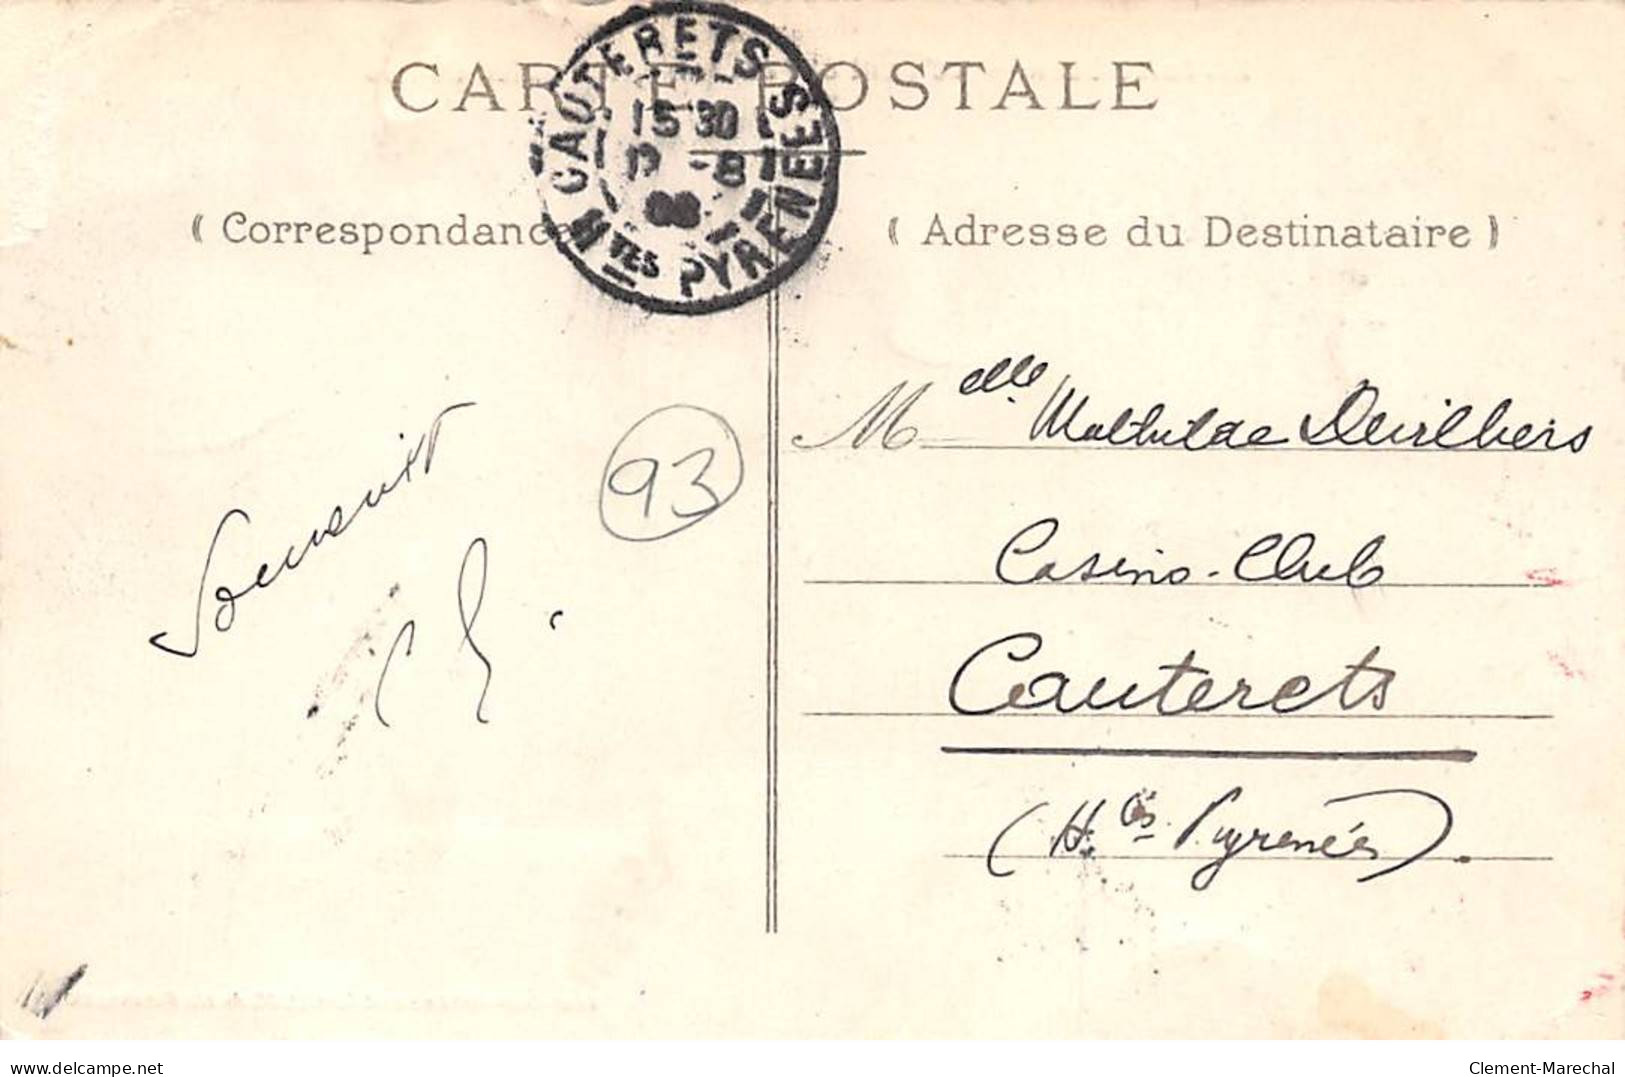 CARTE POSTALE
CAUTERETS
15 30
-8
Htes PYRENEES
( Correspondance
( Adresse du Destinataire )
Souvenir
93
Melle Mathilde Devilliers
Casino-Club
Cauterets
(Htes Pyrénées).
delcampe.net
Clement-Marechal